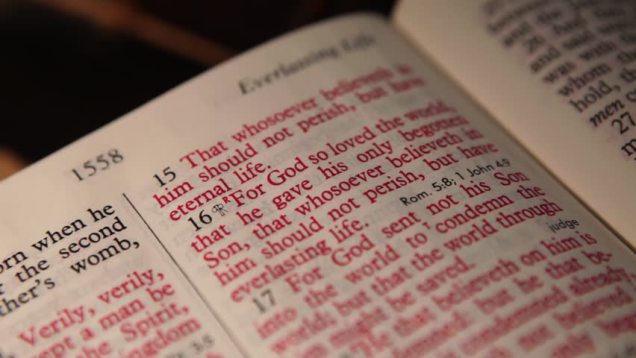 1558
orn when he
r the second
ther's womb,
Verily, verily,
ept a man be
the Spirit,
Everlasting Life
15 That whosoever believeth in
him should not perish, but have
eternal life.
16 For God so loved the world,
that he gave his only begotten
Son, that whosoever believeth in
him should not perish, but have
everlasting life. Rom. 5:8; 1 John 4:9
17 For God sent not his Son
into the world to condemn the
judge
world; but that the world through
him might be saved.
He that believeth on him is
condemned: but he that be-
condemned already,
not believed
was with
whom
hold,
men
27